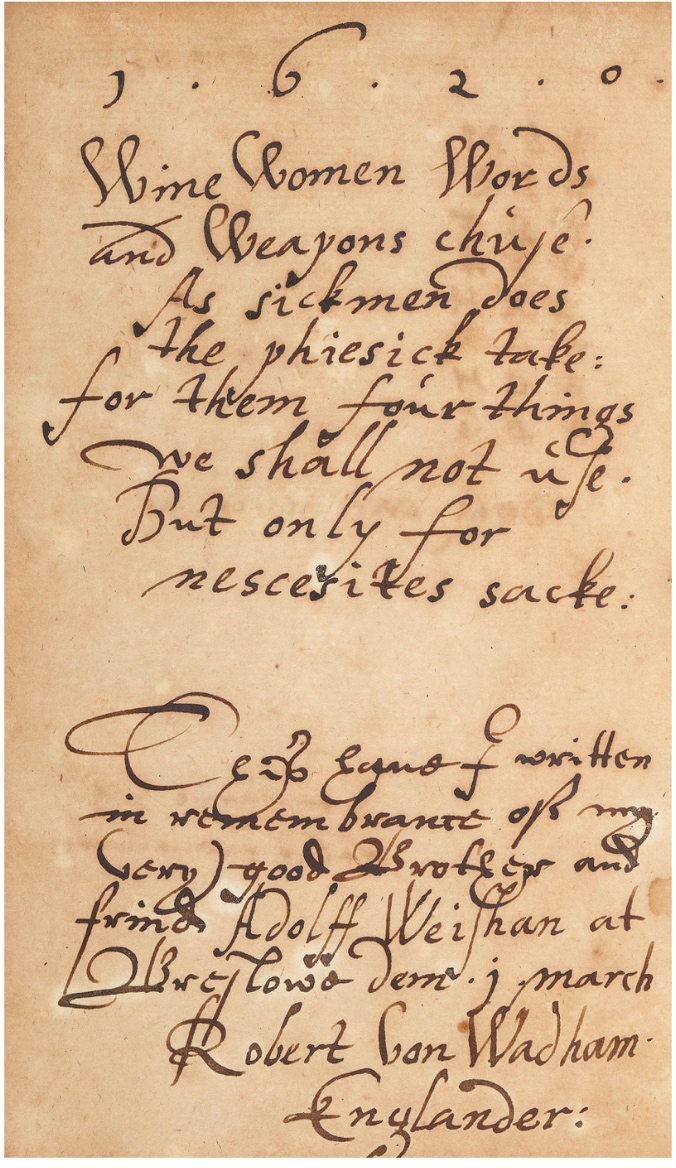 1 . 6 . 2 . 0 .
Wine Women Words
and Weapons chuse.
As sickmen does
the phiesick take:
for them four things
we shall not use.
But only for
nescesites sacke:
This haue I written
in remembrance off my
very good Brother and
frind Adolff Weishan at
Breslowe dem . j . march
Robert von Wadham.
Englander: